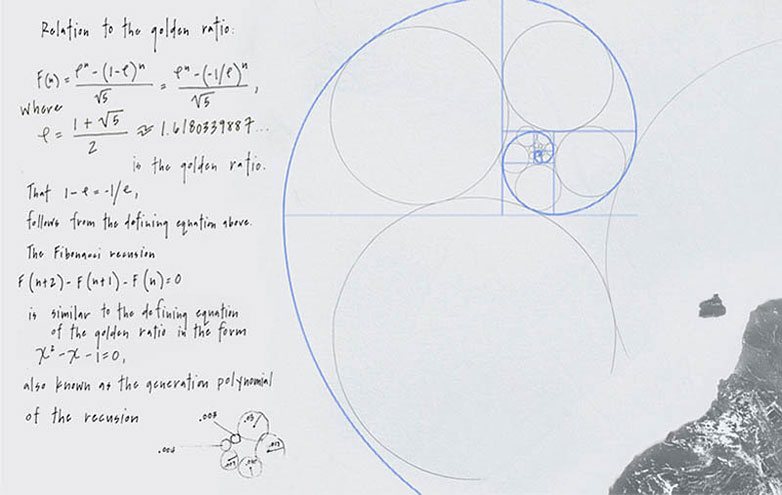 Relation to the golden ratio:
F(n) = φⁿ - (1-φ)ⁿ / √5 = φⁿ - (-1/φ)ⁿ / √5 ,
where
φ = 1 + √5 / 2 ≈ 1.6180339887...
is the golden ratio.
That 1 - φ = -1/φ,
follows from the defining equation above.
The Fibonacci recusion
F(n+2) - F(n+1) - F(n) = 0
is similar to the defining equation
of the golden ratio in the form
x² - x - 1 = 0,
also known as the generation polynomial
of the recusion
.003
.03
.004